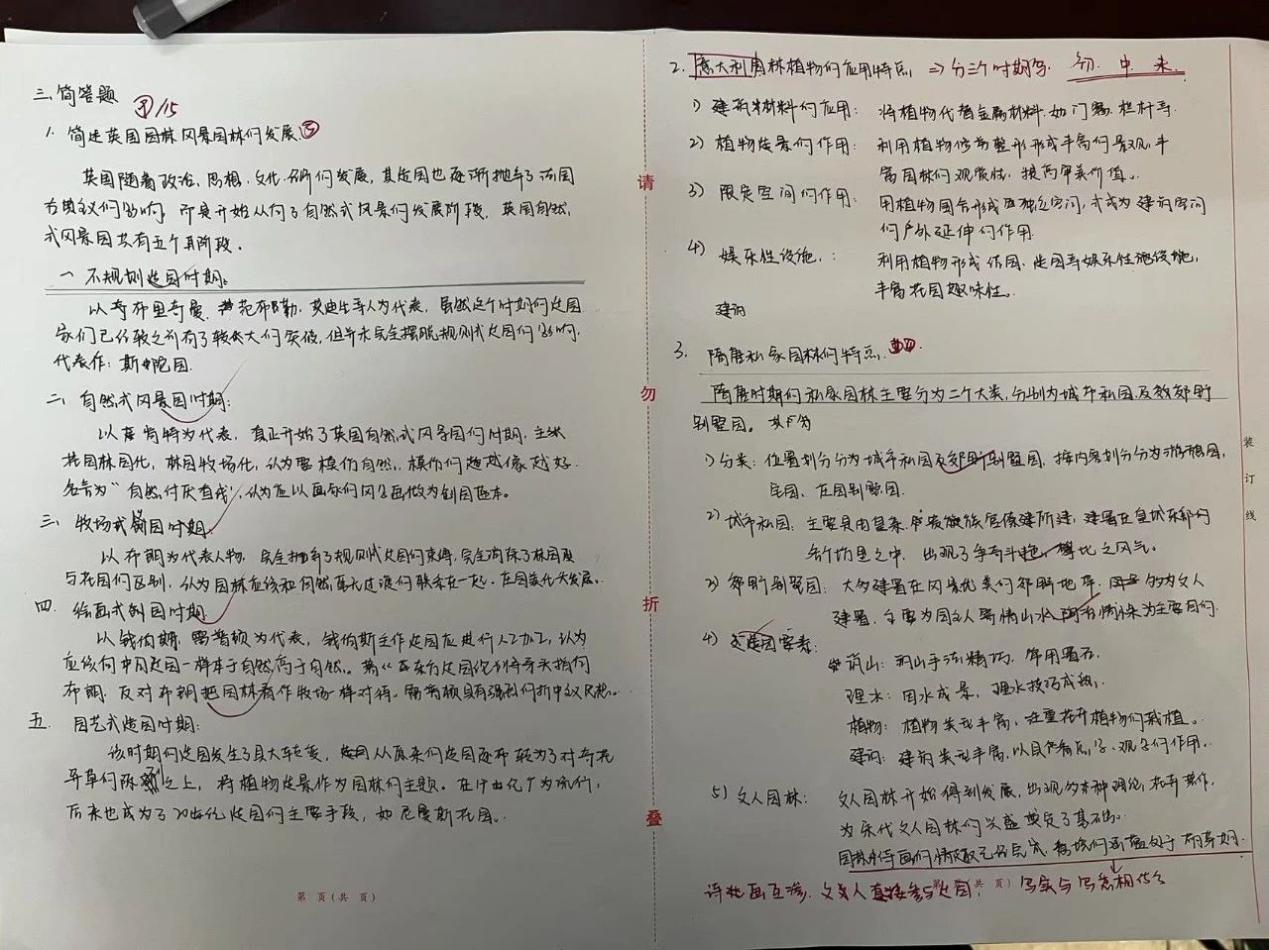 三、简答题 ⑦/15
1. 简述英国园林风景园林的发展 ⑤
英国随着政治、思想、文化、的发展,其造园也逐渐抛弃了法国
古典主义的影响,而是开始从向了自然式风景的发展阶段,英国自然
式风景园共有五个阶段。
一 不规则造园时期:
以 布里奇曼、范布勒、艾迪生等人为代表,虽然这个时期的造园
家们已经较之前有了较大的突破,但并未完全摆脱规则式造园的影响.
代表作:斯陀园.
二、自然式风景园时期:
以肯特为代表,真正开始了英国自然式风景园的时期,主张
花园林园化,林园牧场化,认为要模仿自然,模仿的越像越好.
名言为“自然讨厌直线”,认为应以画家的风景画做为创园蓝本。
三、牧场式园时期:
以布朗为代表人物,完全抛弃了规则式造园的束缚,完全消除了林园及
与花园的区别,认为园林应该和自然毫无过渡的联系在一起。
四、绘画式创园时期
以钱伯斯、雷普顿为代表,钱伯斯主张造园应进行人工加工,认为
应该向中国造园一样本于自然高于自然。
布朗,反对布朗把园林看作牧场一样对待。雷普顿具有强烈的折中主义风格。
五 园艺式造园时期:
该时期的造园发生了巨大转变,从原来的造园逐步转为了对奇花
异草的陈之上,将植物造景作为园林的主题。
后来也成为了20世纪造园的主要手段,如尼曼斯花园.
第 页(共 页)
请
勿
折
叠
2. 意大利园林植物的应用特点 ⇒分三个时期写. 初. 中. 末.
1) 建筑材料的应用: 将植物代替金属材料.如门窗.栏杆等.
2) 植物造景的作用: 利用植物修剪整形形成丰富的景观,丰
富园林的观赏性,提高审美价值。
3) 限定空间的作用: 用植物围合形成独立空间,或成为建筑空间
的户外延伸的作用.
4) 娱乐性设施: 利用植物形成迷园、迷园等娱乐性设施,
丰富花园趣味性。
建筑
3. 隋唐私家园林的特点.
隋唐时期的私家园林主要分为二个大类,分别为城市私园及郊野
别墅园。
1) 分类: 位置划分分为城市私园及郊野别墅园,按内容划分分为游憩园,
宅园、庄园别墅园.
2) 城市私园: 主要是由皇亲、贵族官僚所建,建置在皇城东部的
各个坊里之中,出现了争奇斗艳、攀比之风气。
3) 郊野别墅园: 大多建置在风景优美的郊野地带,多为文人
建置,主要为园主人寄情山水、陶冶情操为主要目的.
4) 造园要素:
筑山: 假山手法精巧,常用置石.
理水: 因水成景,理水技巧成熟.
植物: 植物类型丰富,注重花卉植物的栽植。
建筑: 建筑类型丰富,以具备看点、观景的作用.
5) 文人园林: 文人园林开始得到发展,出现多种理论、花卉著作,
为宋代文人园林的兴盛奠定了基础.
园林诗画的情趣已经完成,意境的涵蕴处于萌芽期.
诗书画互渗,文人直接参与造园, 写实与写意相结合
第 页(共 页)
装
订
线